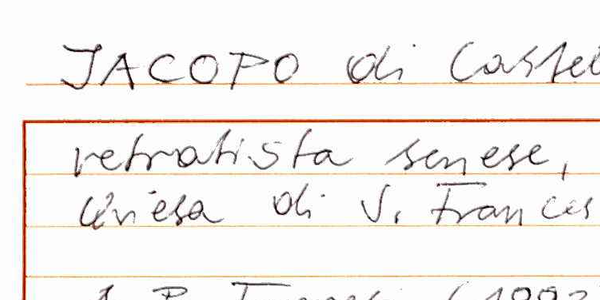 JACOPO di Castel
retratista senese,
chiesa di S. Frances